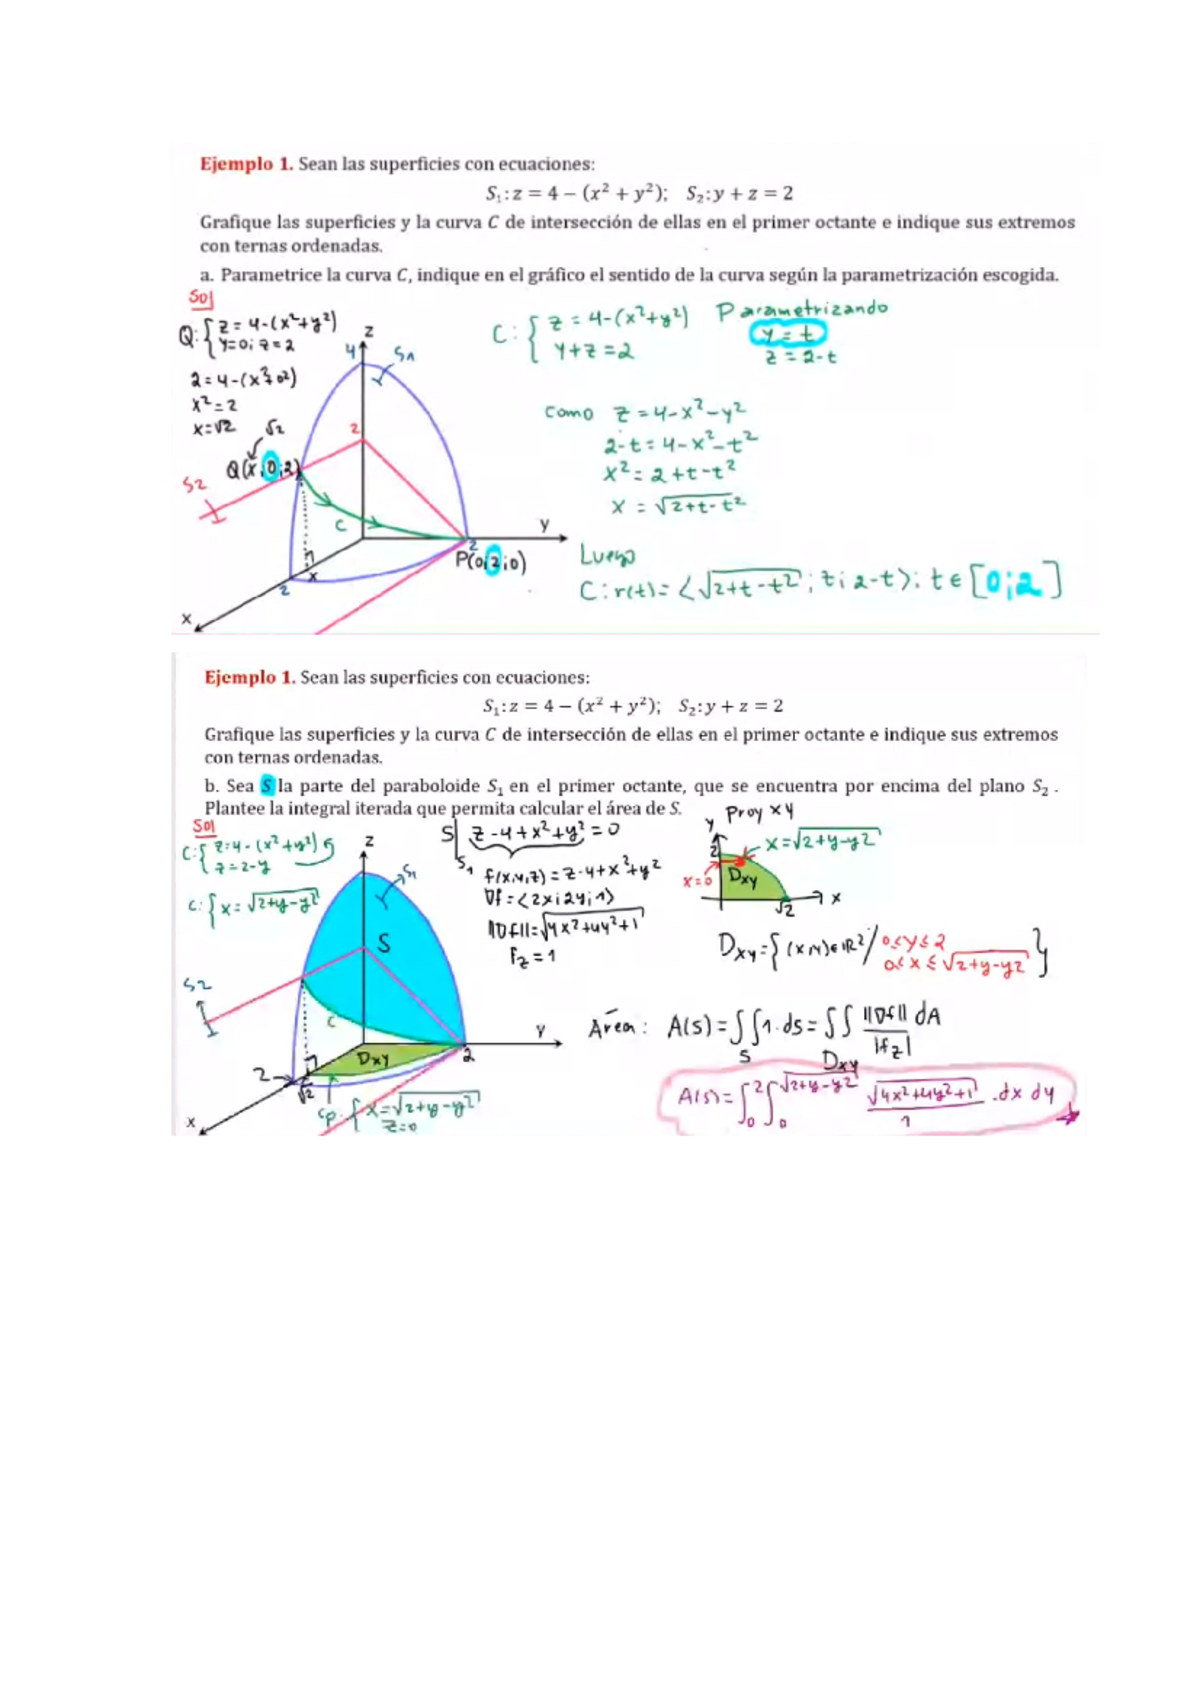 Ejemplo 1. Sean las superficies con ecuaciones:
S₁: z = 4 − (x² + y²); S₂: y + z = 2
Grafique las superficies y la curva C de intersección de ellas en el primer octante e indique sus extremos
con ternas ordenadas.
a. Parametrice la curva C, indique en el gráfico el sentido de la curva según la parametrización escogida.
Sol
Q: { z = 4-(x²+y²)
y=0; z=2
2 = 4-(x²+0²)
x² = 2
x=√2
√2
Q(x;0;2)
S2
z
4
S1
2
C
y
2
P(0;2;0)
x
2
x
C: { z = 4-(x²+y²)
y+z = 2
Parametrizando
y = t
z = 2-t
Como z = 4-x²-y²
2-t = 4-x²-t²
x² = 2+t-t²
x = √2+t-t²
Luego
C: r(t) = <√2+t-t² ; t; 2-t>; t ∈ [0;2]
Ejemplo 1. Sean las superficies con ecuaciones:
S₁: z = 4 − (x² + y²); S₂: y + z = 2
Grafique las superficies y la curva C de intersección de ellas en el primer octante e indique sus extremos
con ternas ordenadas.
b. Sea S la parte del paraboloide S₁ en el primer octante, que se encuentra por encima del plano S₂ .
Plantee la integral iterada que permita calcular el área de S.
Sol
C: { z=4-(x²+y²)
z=2-y
C: { x = √2+y-y²
S2
z
S1
S
C
Dxy
y
2
2
√2
x
Cp: { x=√2+y-y²
z=0
S| z-4+x²+y² = 0
S1
f(x,y,z) = z-4+x²+y²
∇f = <2x; 2y; 1>
||∇f|| = √4x²+4y²+1
fz = 1
Proy xy
y
2
x=√2+y-y²
x=0
Dxy
x
√2
Dxy = { (x,y) ∈ R² / 0≤y≤2
0≤x≤√2+y-y² }
Área: A(S) = ∫∫ 1.ds = ∫∫ ||∇f|| dA
S Dxy |fz|
A(S) = ∫₀² ∫₀^√2+y-y² √4x²+4y²+1 .dx dy
1